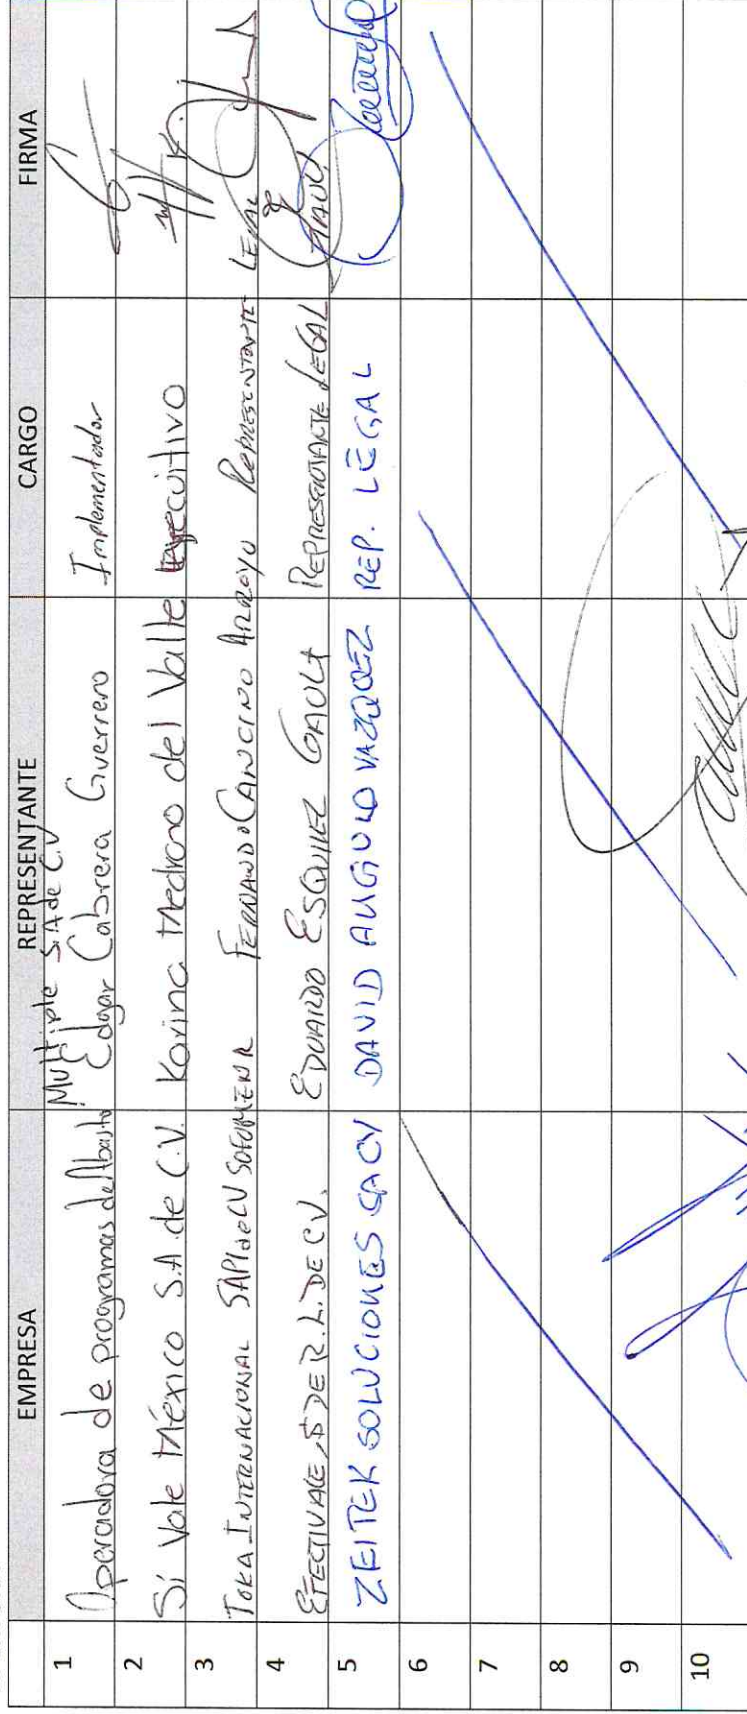 EMPRESA REPRESENTANTE CARGO FIRMA
1 Operadora de programas de Abasto Multiple S.A de C.V Edgar Cabrera Guerrero Implementador
2 Sí Vale México S.A de C.V. Karina Medrano del Valle Ejecutivo
3 TOKA INTERNACIONAL SAPI de CV SOFOM ENR FERNANDO CANCINO ARROYO REPRESENTANTE LEGAL
4 EFECTIVALE, S DE R.L. DE C.V. EDUARDO ESQUIVEL GAULT REPRESENTANTE LEGAL
5 ZEITEK SOLUCIONES SA CV DAVID ANGULO VAZQUEZ REP. LEGAL
6
7
8
9
10